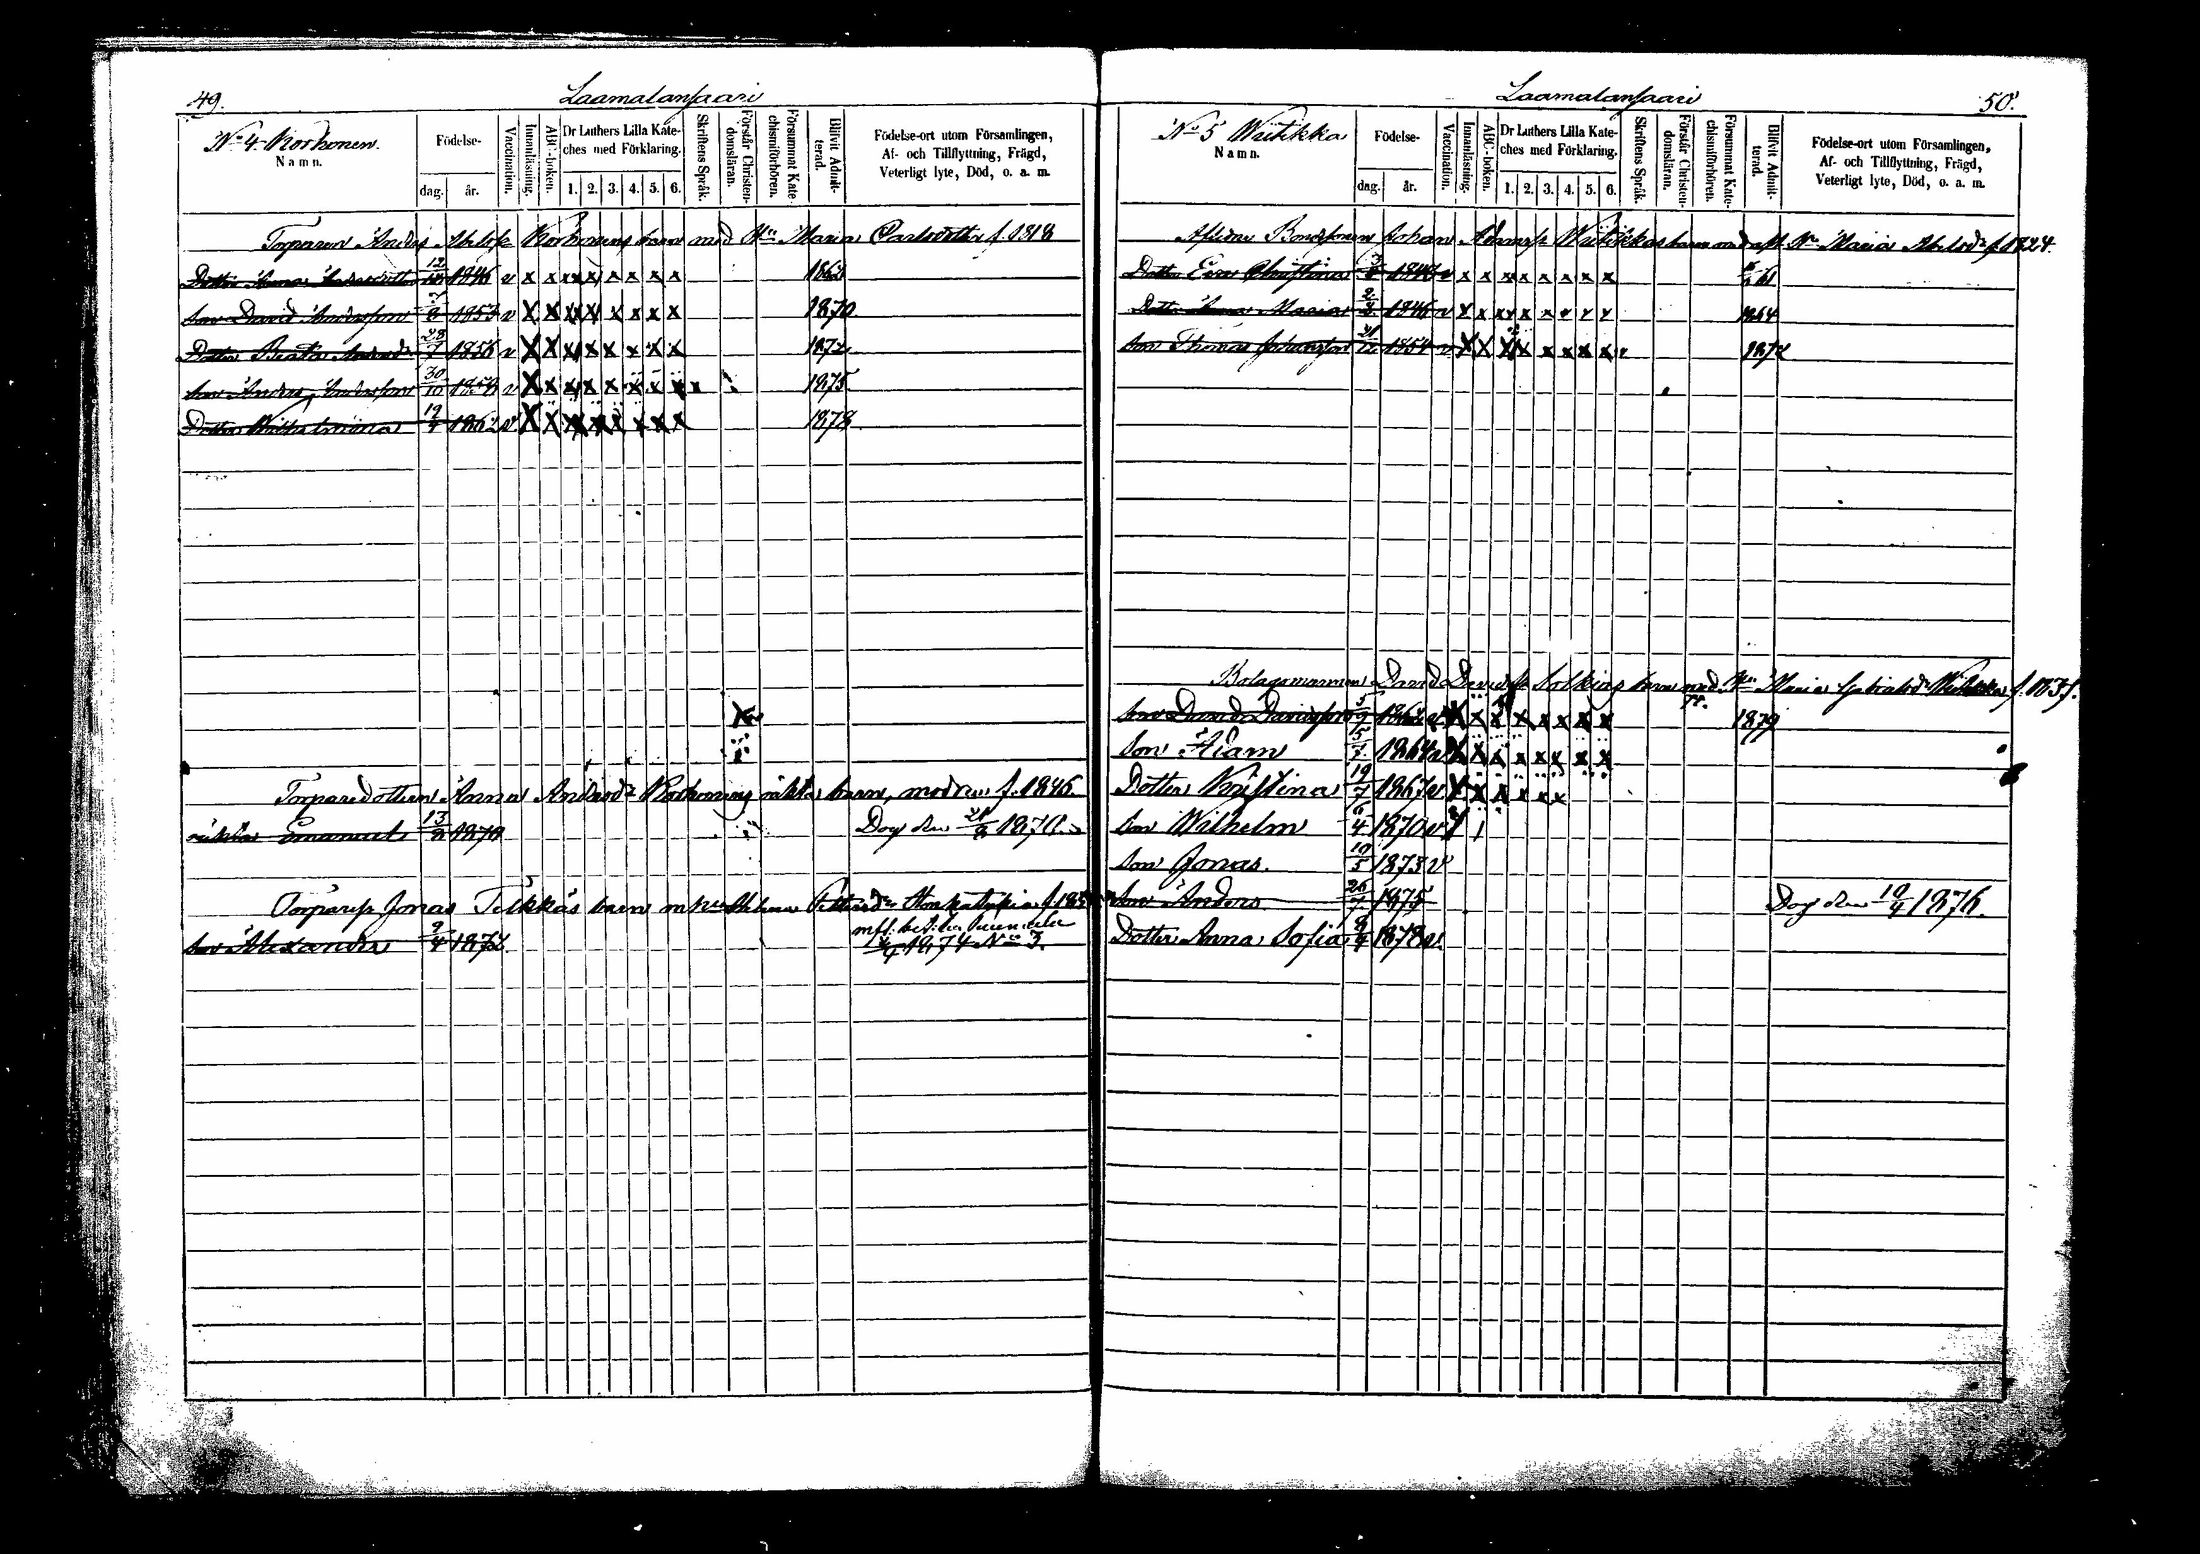 49.
Laamalansaari
No 4 Korhonen.
Namn.
Födelse-
dag.
år.
Vaccination.
Innanläsning.
ABC-boken.
Dr Luthers Lilla Kate-
ches med Förklaring.
1. 2. 3. 4. 5. 6.
Skriftens Språk.
Förstår Christen-
domsläran.
Försummat Kate-
chismiförhören.
Blifvit Admit-
terad.
Födelse-ort utom Församlingen,
Af- och Tillflyttning, Frägd,
Veterligt lyte, Död, o. a. m.
Torparen Anders Abelss. Korhonens barn med Hu Maria Carlsdotter f. 1818
Dotter Anna Andersdotter 12 1846 v x x x x x x x x
Son David Andersson 7/8 1853 v x x x x x x x x 1870
Dotter Beata Andersd. 28/7 1856 v x x x x x x x x 1872
Son Anders Andersson 30/10 v x x x x x x x x x 1875
Dotter Wilhelmina 19/4 1862 v x x x x x x x x 1878
Torparedottern Anna Andersd:r Korhonens oäkta barn, modren f. 1846
oäkta Emanuel 13/2 1870 Dog den 1870.
Torpares. Jonas Tikkas barn m hu
son Alexander 9/4 1872 1874 No 3.
Laamalansaari
50.
No 5 Wutikka
Namn.
Födelse-
dag.
år.
Vaccination.
Innanläsning.
ABC-boken.
Dr Luthers Lilla Kate-
ches med Förklaring.
1. 2. 3. 4. 5. 6.
Skriftens Språk.
Förstår Christen-
domsläran.
Försummat Kate-
chismiförhören.
Blifvit Admit-
terad.
Födelse-ort utom Församlingen,
Af- och Tillflyttning, Frägd,
Veterligt lyte, Död, o. a. m.
Aflidne Bondesonen Johan Adamss. Wutikkas barn med Maria Abelsd:r f. 1824.
Dotter Eva Christina v x x x x x x x x 61
Dotter Anna Maria 1846 v x x x x x x x x 1864
Son Thomas Johansson 21/12 1854 v x x x x x x x x 1872
Bolagsmannen David Davidss. barn med Hu Maria Gabrielsd:r
Son David Davidsson 5/9 v x x x x x x x x 1879
Son Adam 15/7 1864 v x x x x x x x x
Dotter Kristina 19/7 1867 v x x x x x x
Son Wilhelm 6/4 1870 v
Son Jonas. 10/5 1873 v
Son Anders 26/7 1875 Dog den 19/4 1876.
Dotter Anna Sofia 9/4 1878 v.